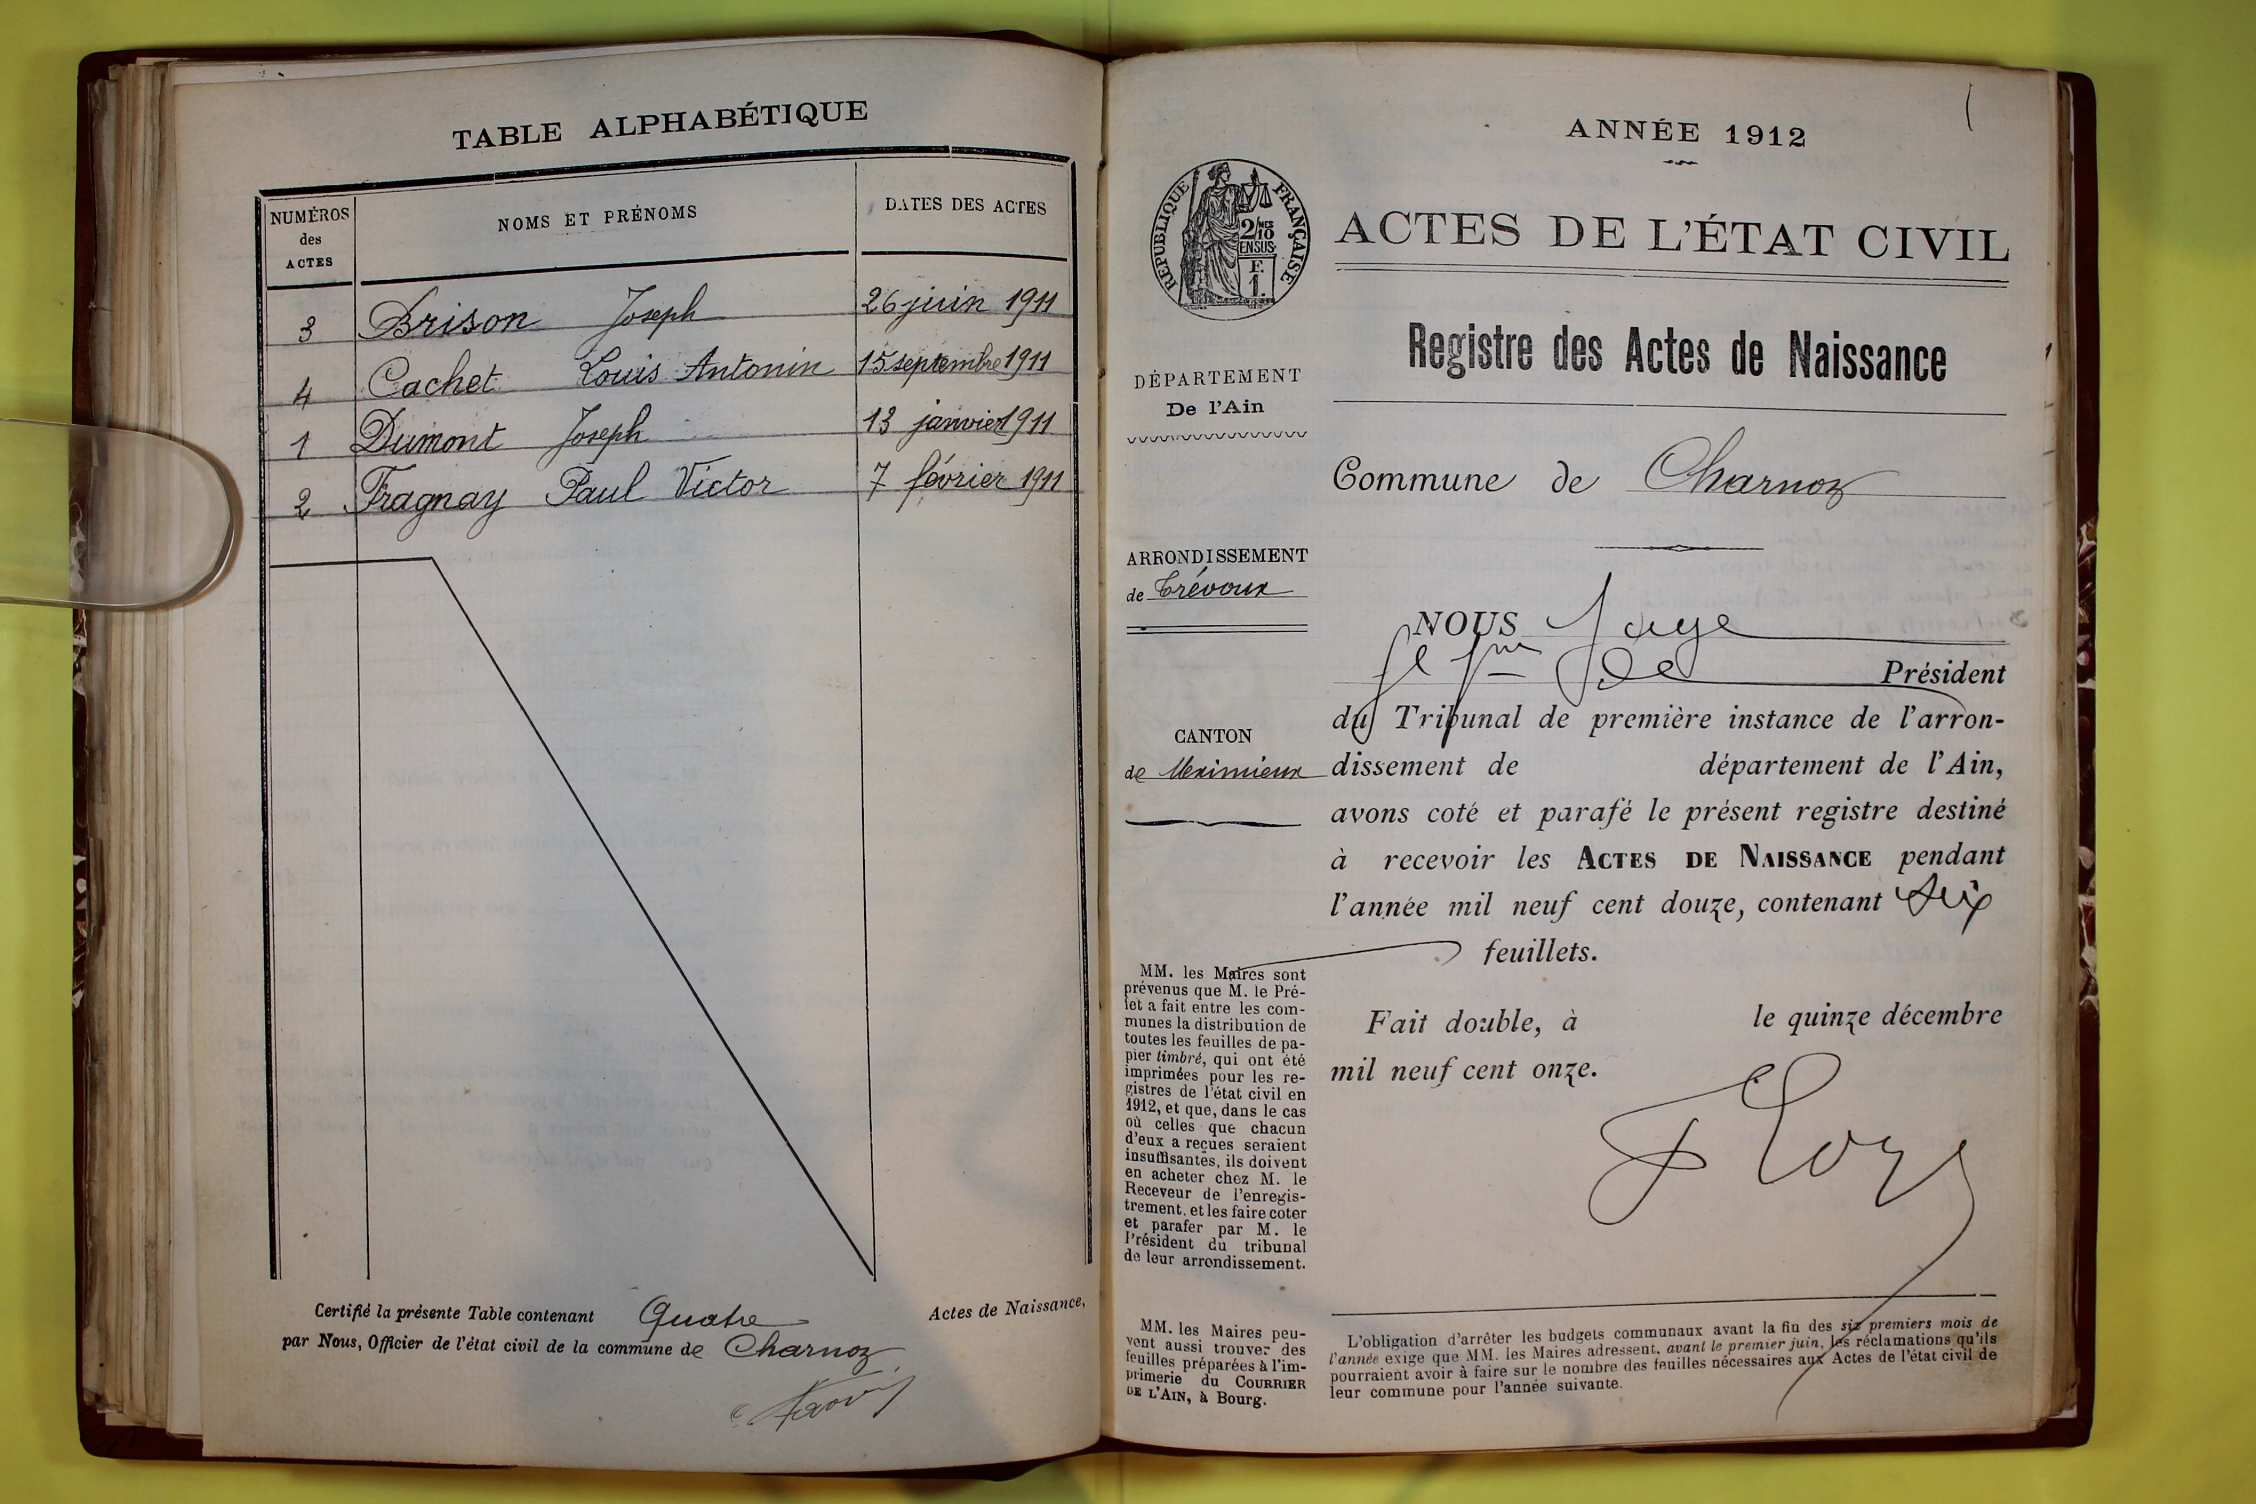 TABLE ALPHABÉTIQUE
NUMÉROS des ACTES
NOMS ET PRÉNOMS
DATES DES ACTES
3 Brison Joseph 26 juin 1911
4 Cachet Louis Antonin 15 septembre 1911
1 Dumont Joseph 13 janvier 1911
2 Fragnay Paul Victor 7 février 1911
Certifié la présente Table contenant Quatre Actes de Naissance,
par Nous, Officier de l'état civil de la commune de Charnoz
1
ANNÉE 1912
RÉPUBLIQUE FRANÇAISE
2/10mes
EN SUS
F.
1.
ACTES DE L'ÉTAT CIVIL
Registre des Actes de Naissance
DÉPARTEMENT
De l'Ain
Commune de Charnoz
ARRONDISSEMENT
de Trévoux
CANTON
de Meximieux
NOUS Juge
Président
du Tribunal de première instance de l'arron-
dissement de département de l'Ain,
avons coté et parafé le présent registre destiné
à recevoir les ACTES DE NAISSANCE pendant
l'année mil neuf cent douze, contenant six
feuillets.
Fait double, à le quinze décembre
mil neuf cent onze.
MM. les Maires sont
prévenus que M. le Pré-
fet a fait entre les com-
munes la distribution de
toutes les feuilles de pa-
pier timbré, qui ont été
imprimées pour les re-
gistres de l'état civil en
1912, et que, dans le cas
où celles que chacun
d'eux a reçues seraient
insuffisantes, ils doivent
en acheter chez M. le
Receveur de l'enregis-
trement, et les faire coter
et parafer par M. le
Président du tribunal
de leur arrondissement.
MM. les Maires peu-
vent aussi trouver des
feuilles préparées à l'im-
primerie du COURRIER
DE L'AIN, à Bourg.
L'obligation d'arrêter les budgets communaux avant la fin des six premiers mois de
l'année exige que MM. les Maires adressent, avant le premier juin, les réclamations qu'ils
pourraient avoir à faire sur le nombre des feuilles nécessaires aux Actes de l'état civil de
leur commune pour l'année suivante.